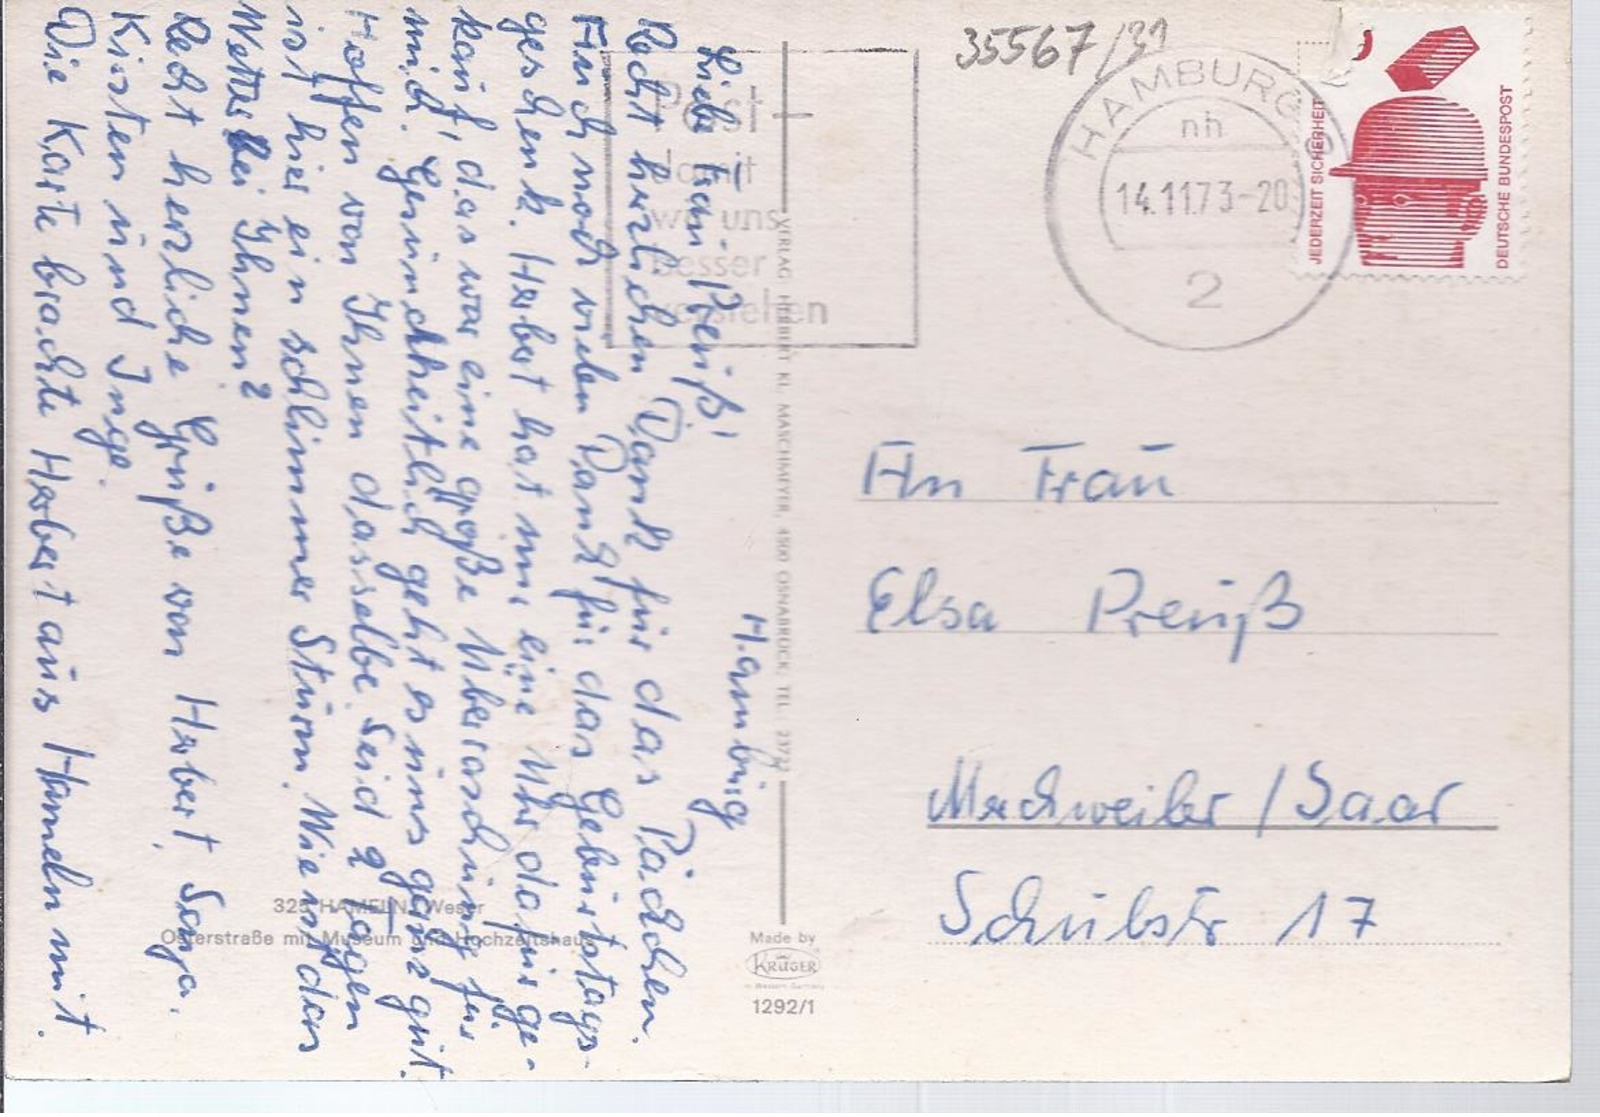 Hamburg
Liebe Frau Preüß!
Recht herzlichen Dank für das Päckchen.
Auch noch vielen Dank für das Gebürtstags-
geschenk. Herbert hat mir eine Uhr dafür ge-
kauft, das war eine große Überraschung für
mich. Gesündheitlich geht es üns ganz gut.
Hoffen von Ihnen dasselbe. Seid 2 Tagen
ist hier ein schlimmer Stürm. Wie ist das
Wetter bei Ihnen?
Recht herzliche Grüße von Herbert, Sonja,
Kirsten ünd Inge.
Die Karte brachte Herbert aüs Hameln mit.
325 HAMELN/Weser
Osterstraße mit Museum und Hochzeitshaus
VERLAG HERBERT KL. MASCHMEYER, 4500 OSNABRÜCK, TEL.
Made by
KRÜGER
in Western Germany
1292/1
35567/31
Post
damit
wir uns
besser
verstehen
HAMBURG
nh
14.11.73-20
2
JEDERZEIT SICHERHEIT
DEUTSCHE BUNDESPOST
An Fraü
Elsa Preüß
Merchweiler/Saar
Schülstr 17